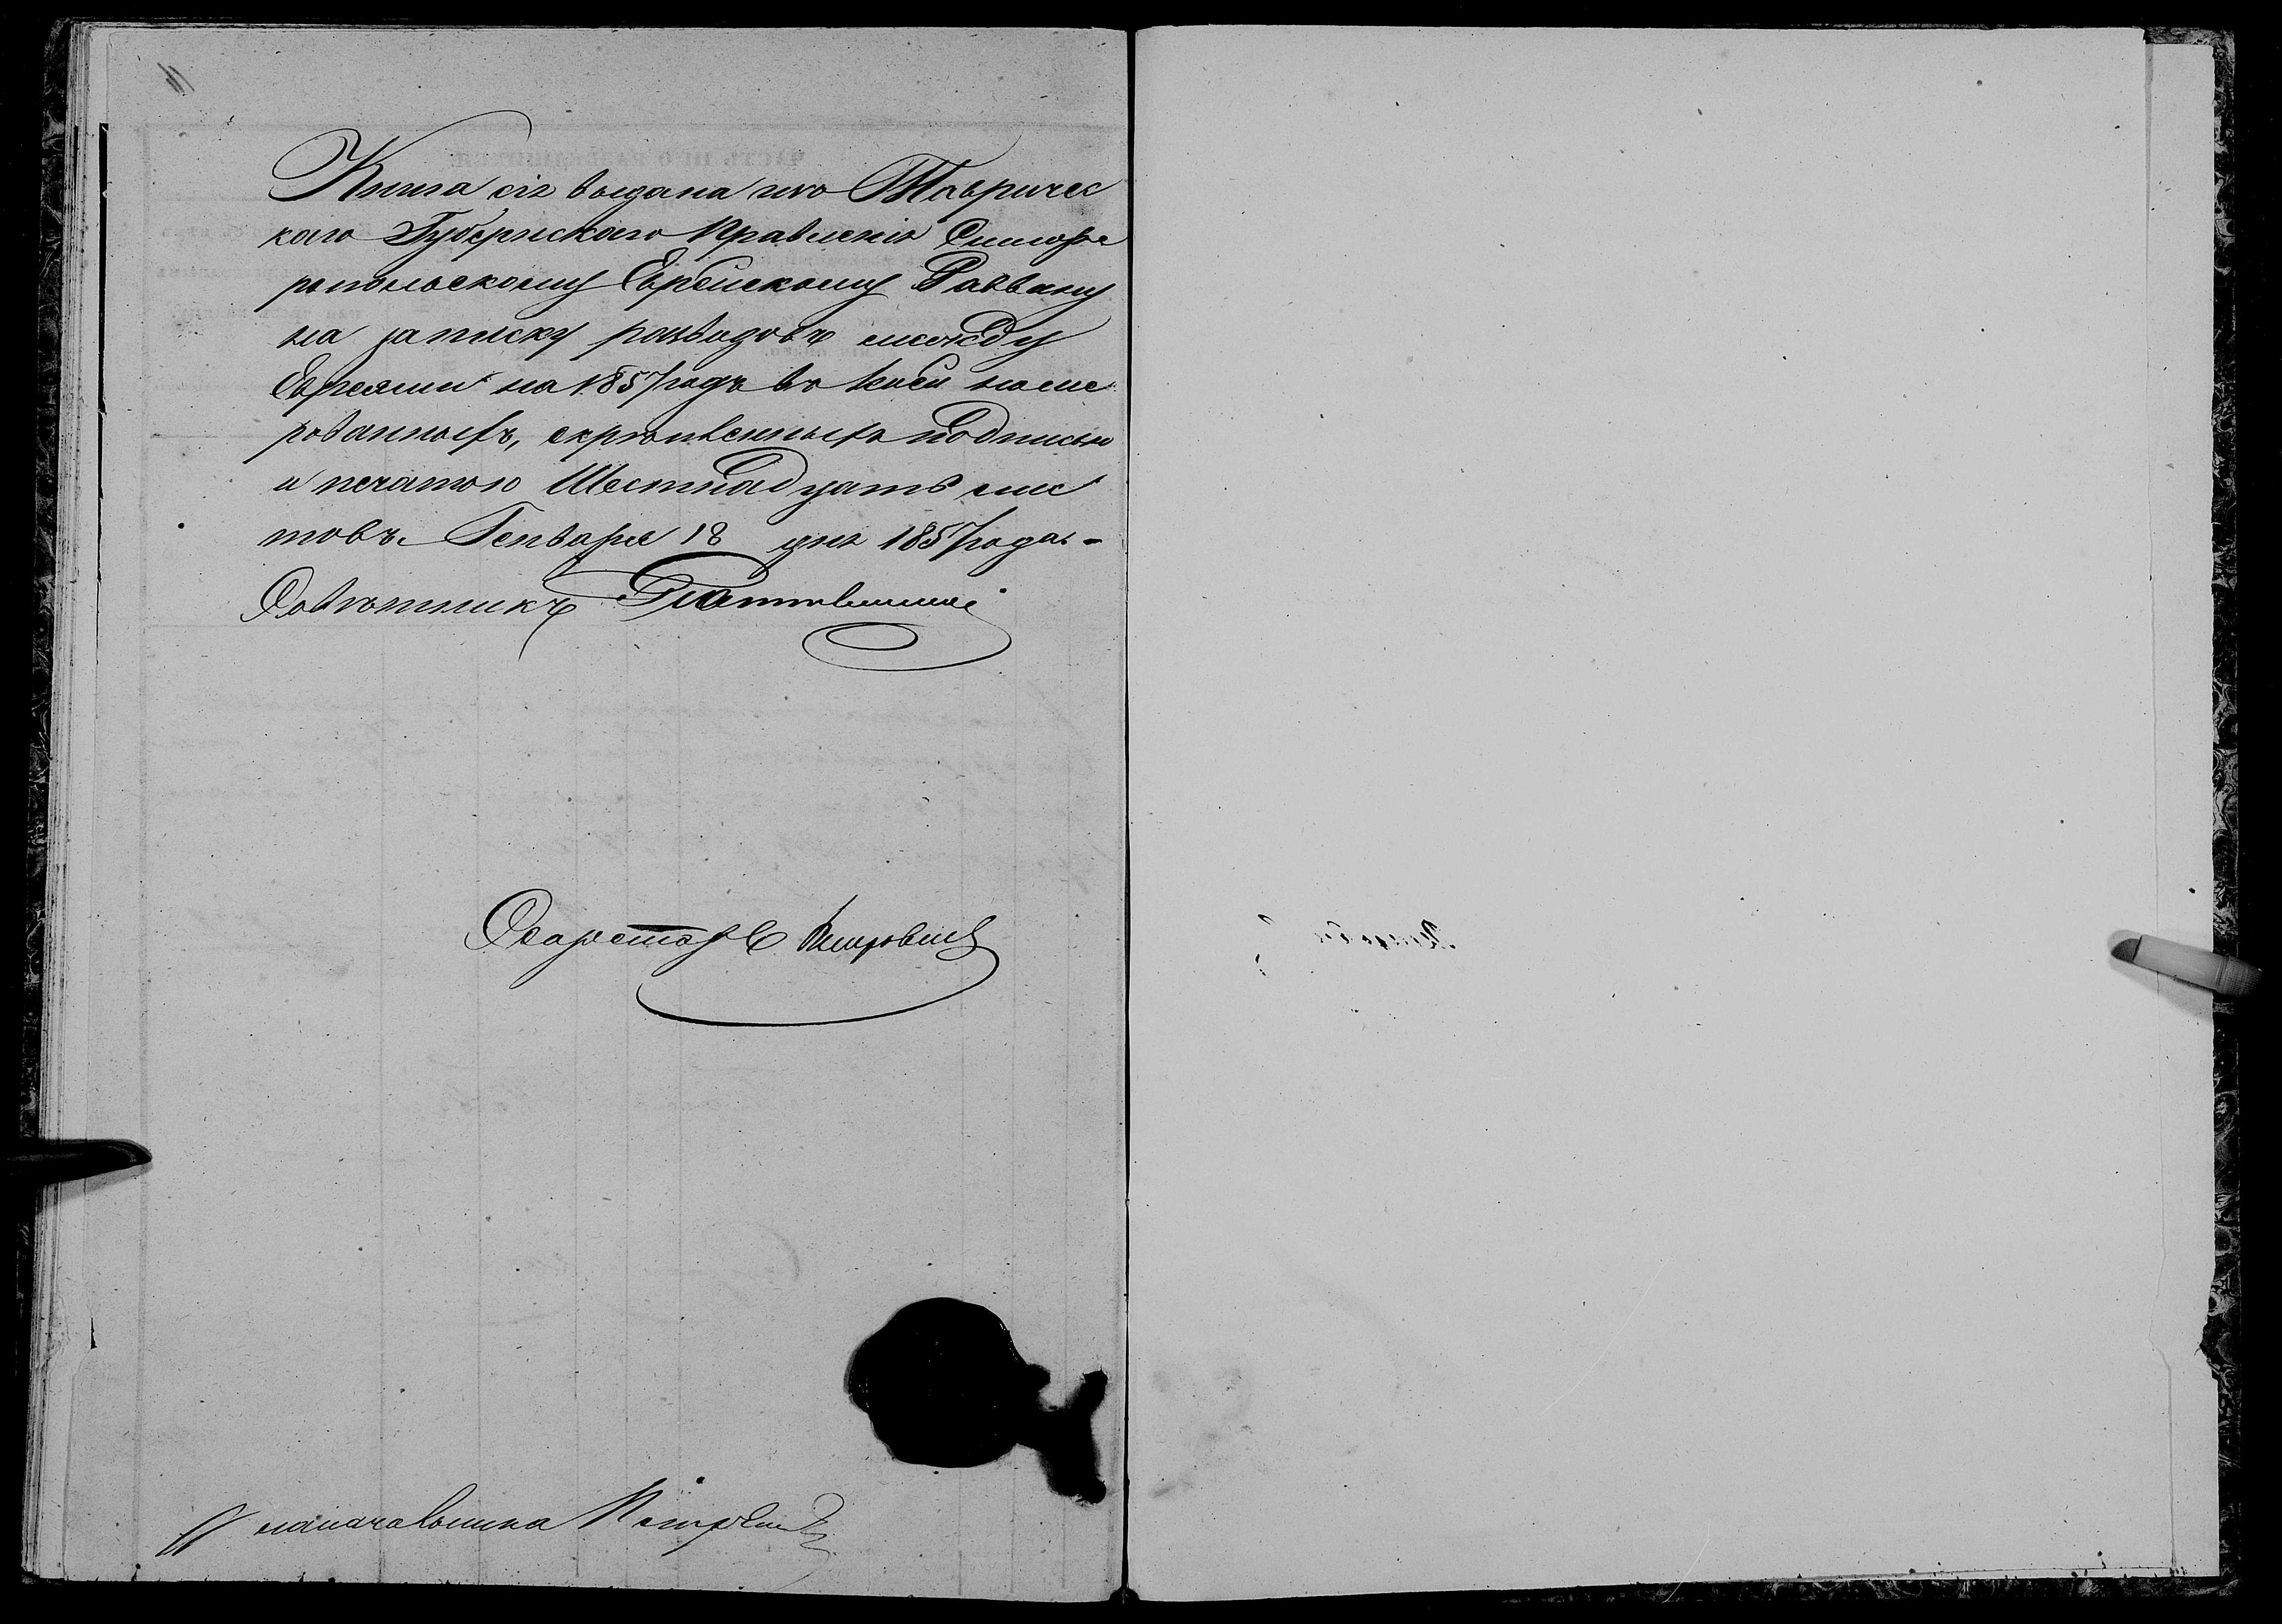 Книга сія выдана изъ Тавричес
каго Губернскаго Правленія Симфе
ропольскому Еврейскому Раввину
на записку разводовъ между
Евреями на 1857 годъ въ коей номе
рованныхъ, скрѣпленныхъ подписью
и печатью Шестнадцать лис
товъ. Генваря 18 дня 1857 года. -
Совѣтникъ
Секретарь Петровскій
Столоначальника